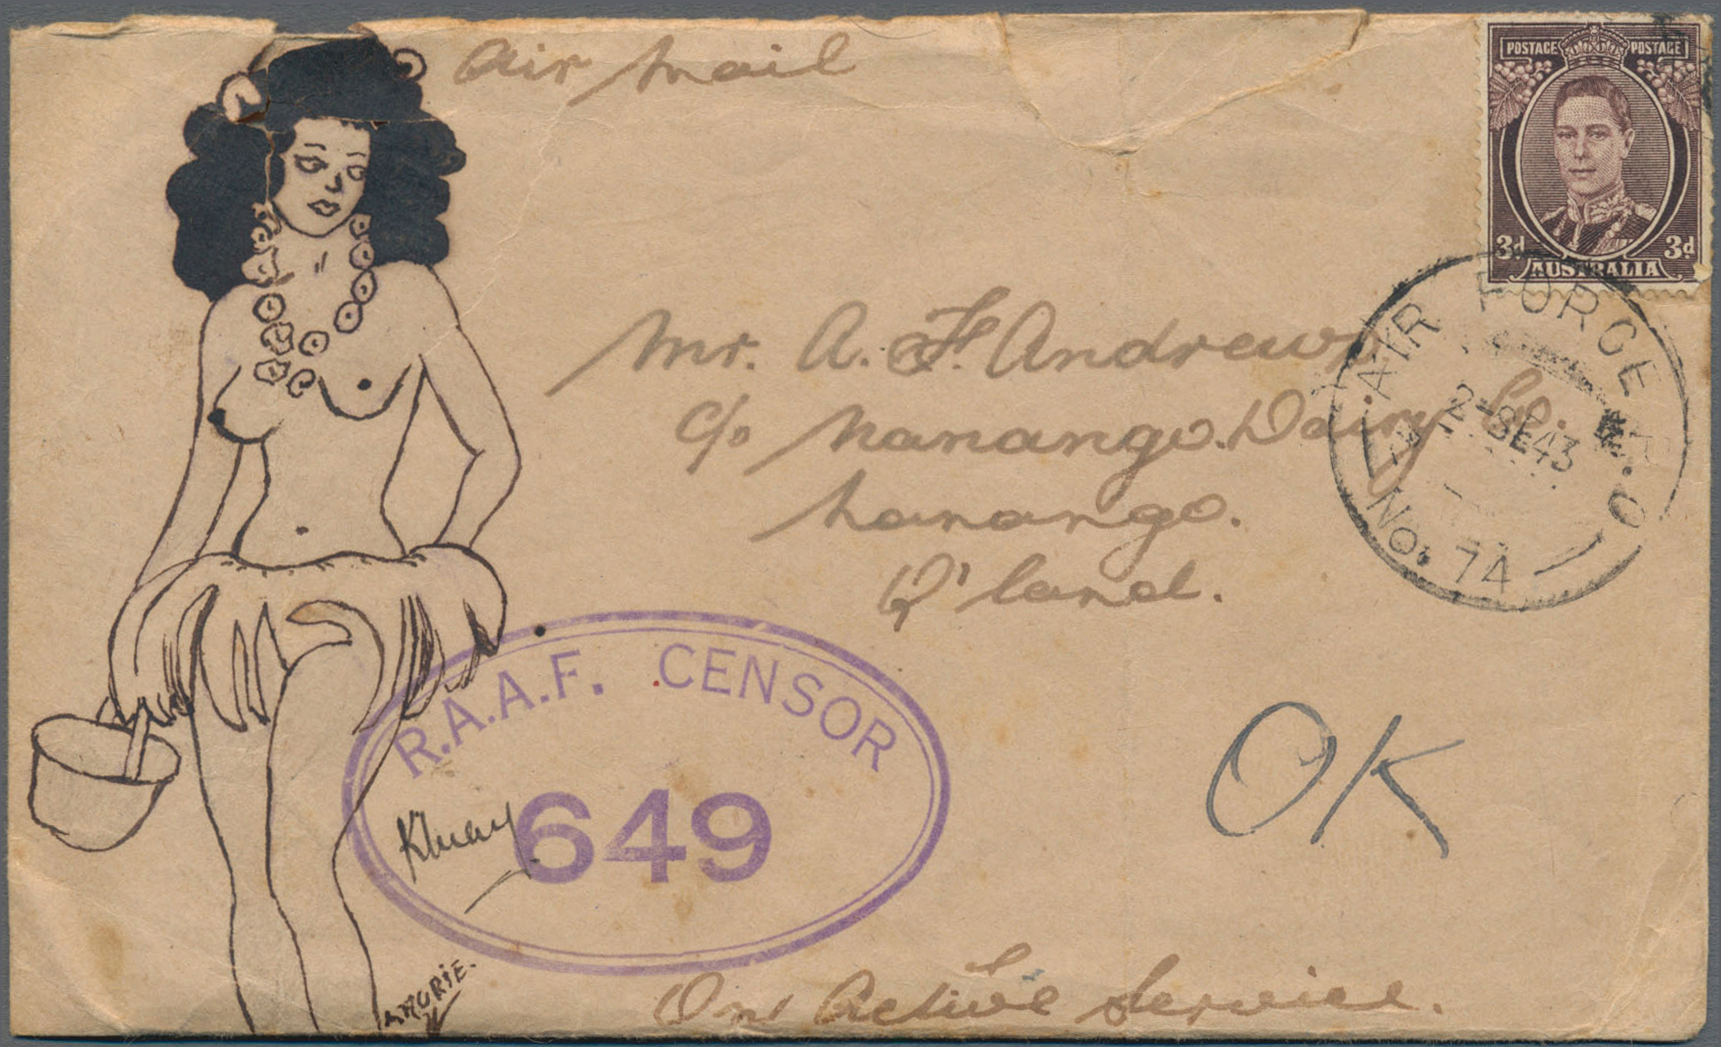 Air Mail
POSTAGE POSTAGE
3d 3d
AUSTRALIA
AIR FORCE P.O.
2 SE 43
No. 74
Mr. A. F. Andrews
c/o Nanango Dairy Co.
Nanango.
Q'land.
R.A.A.F. CENSOR
649
OK
On Active Service.